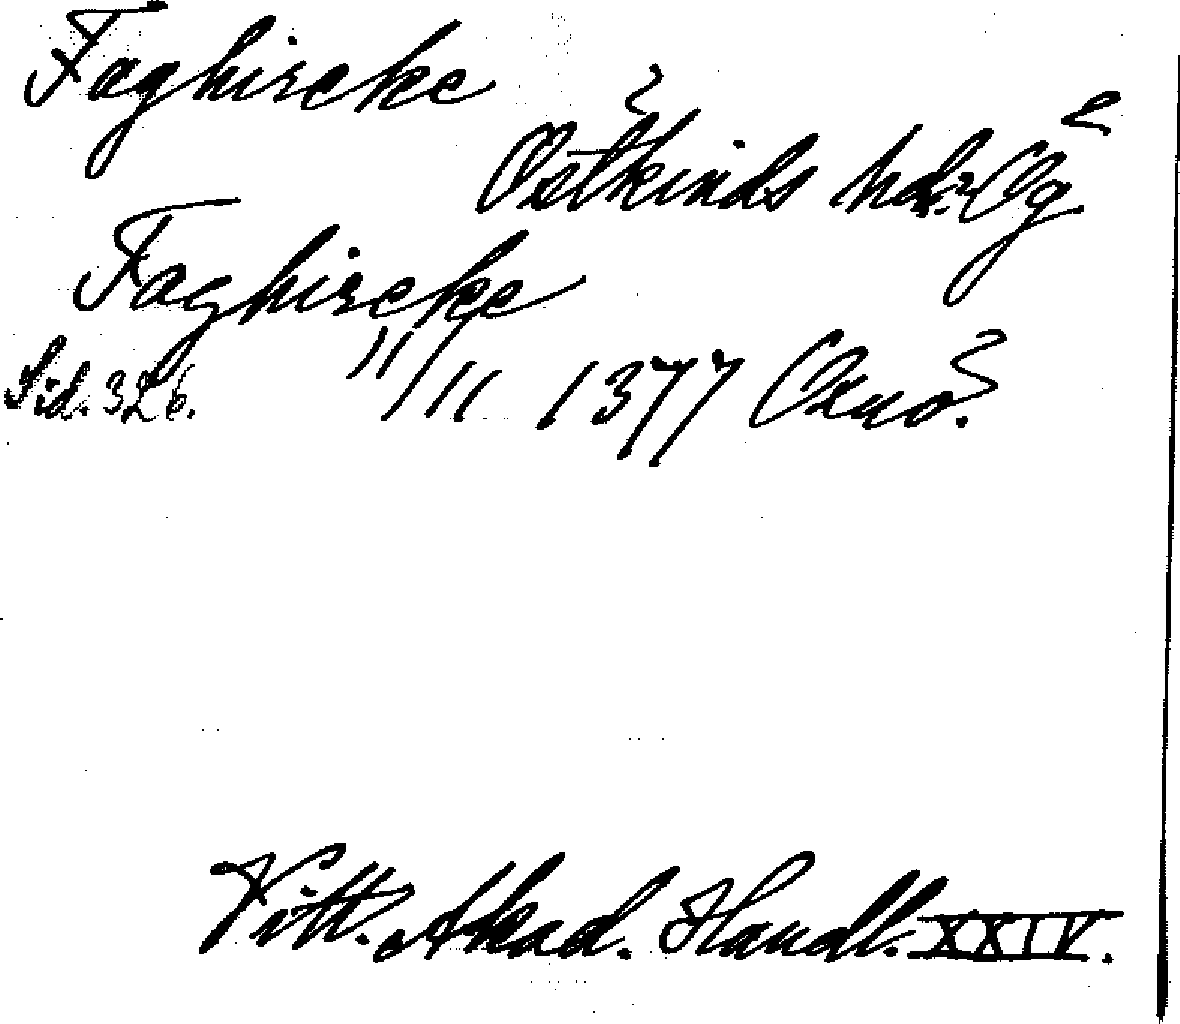 Faghircke
Östkinds hd. Ög.
Faghircke
Sid. 326. 11/11 1377 Oxnö.
Vitt. Akad. Handl. XXIV.